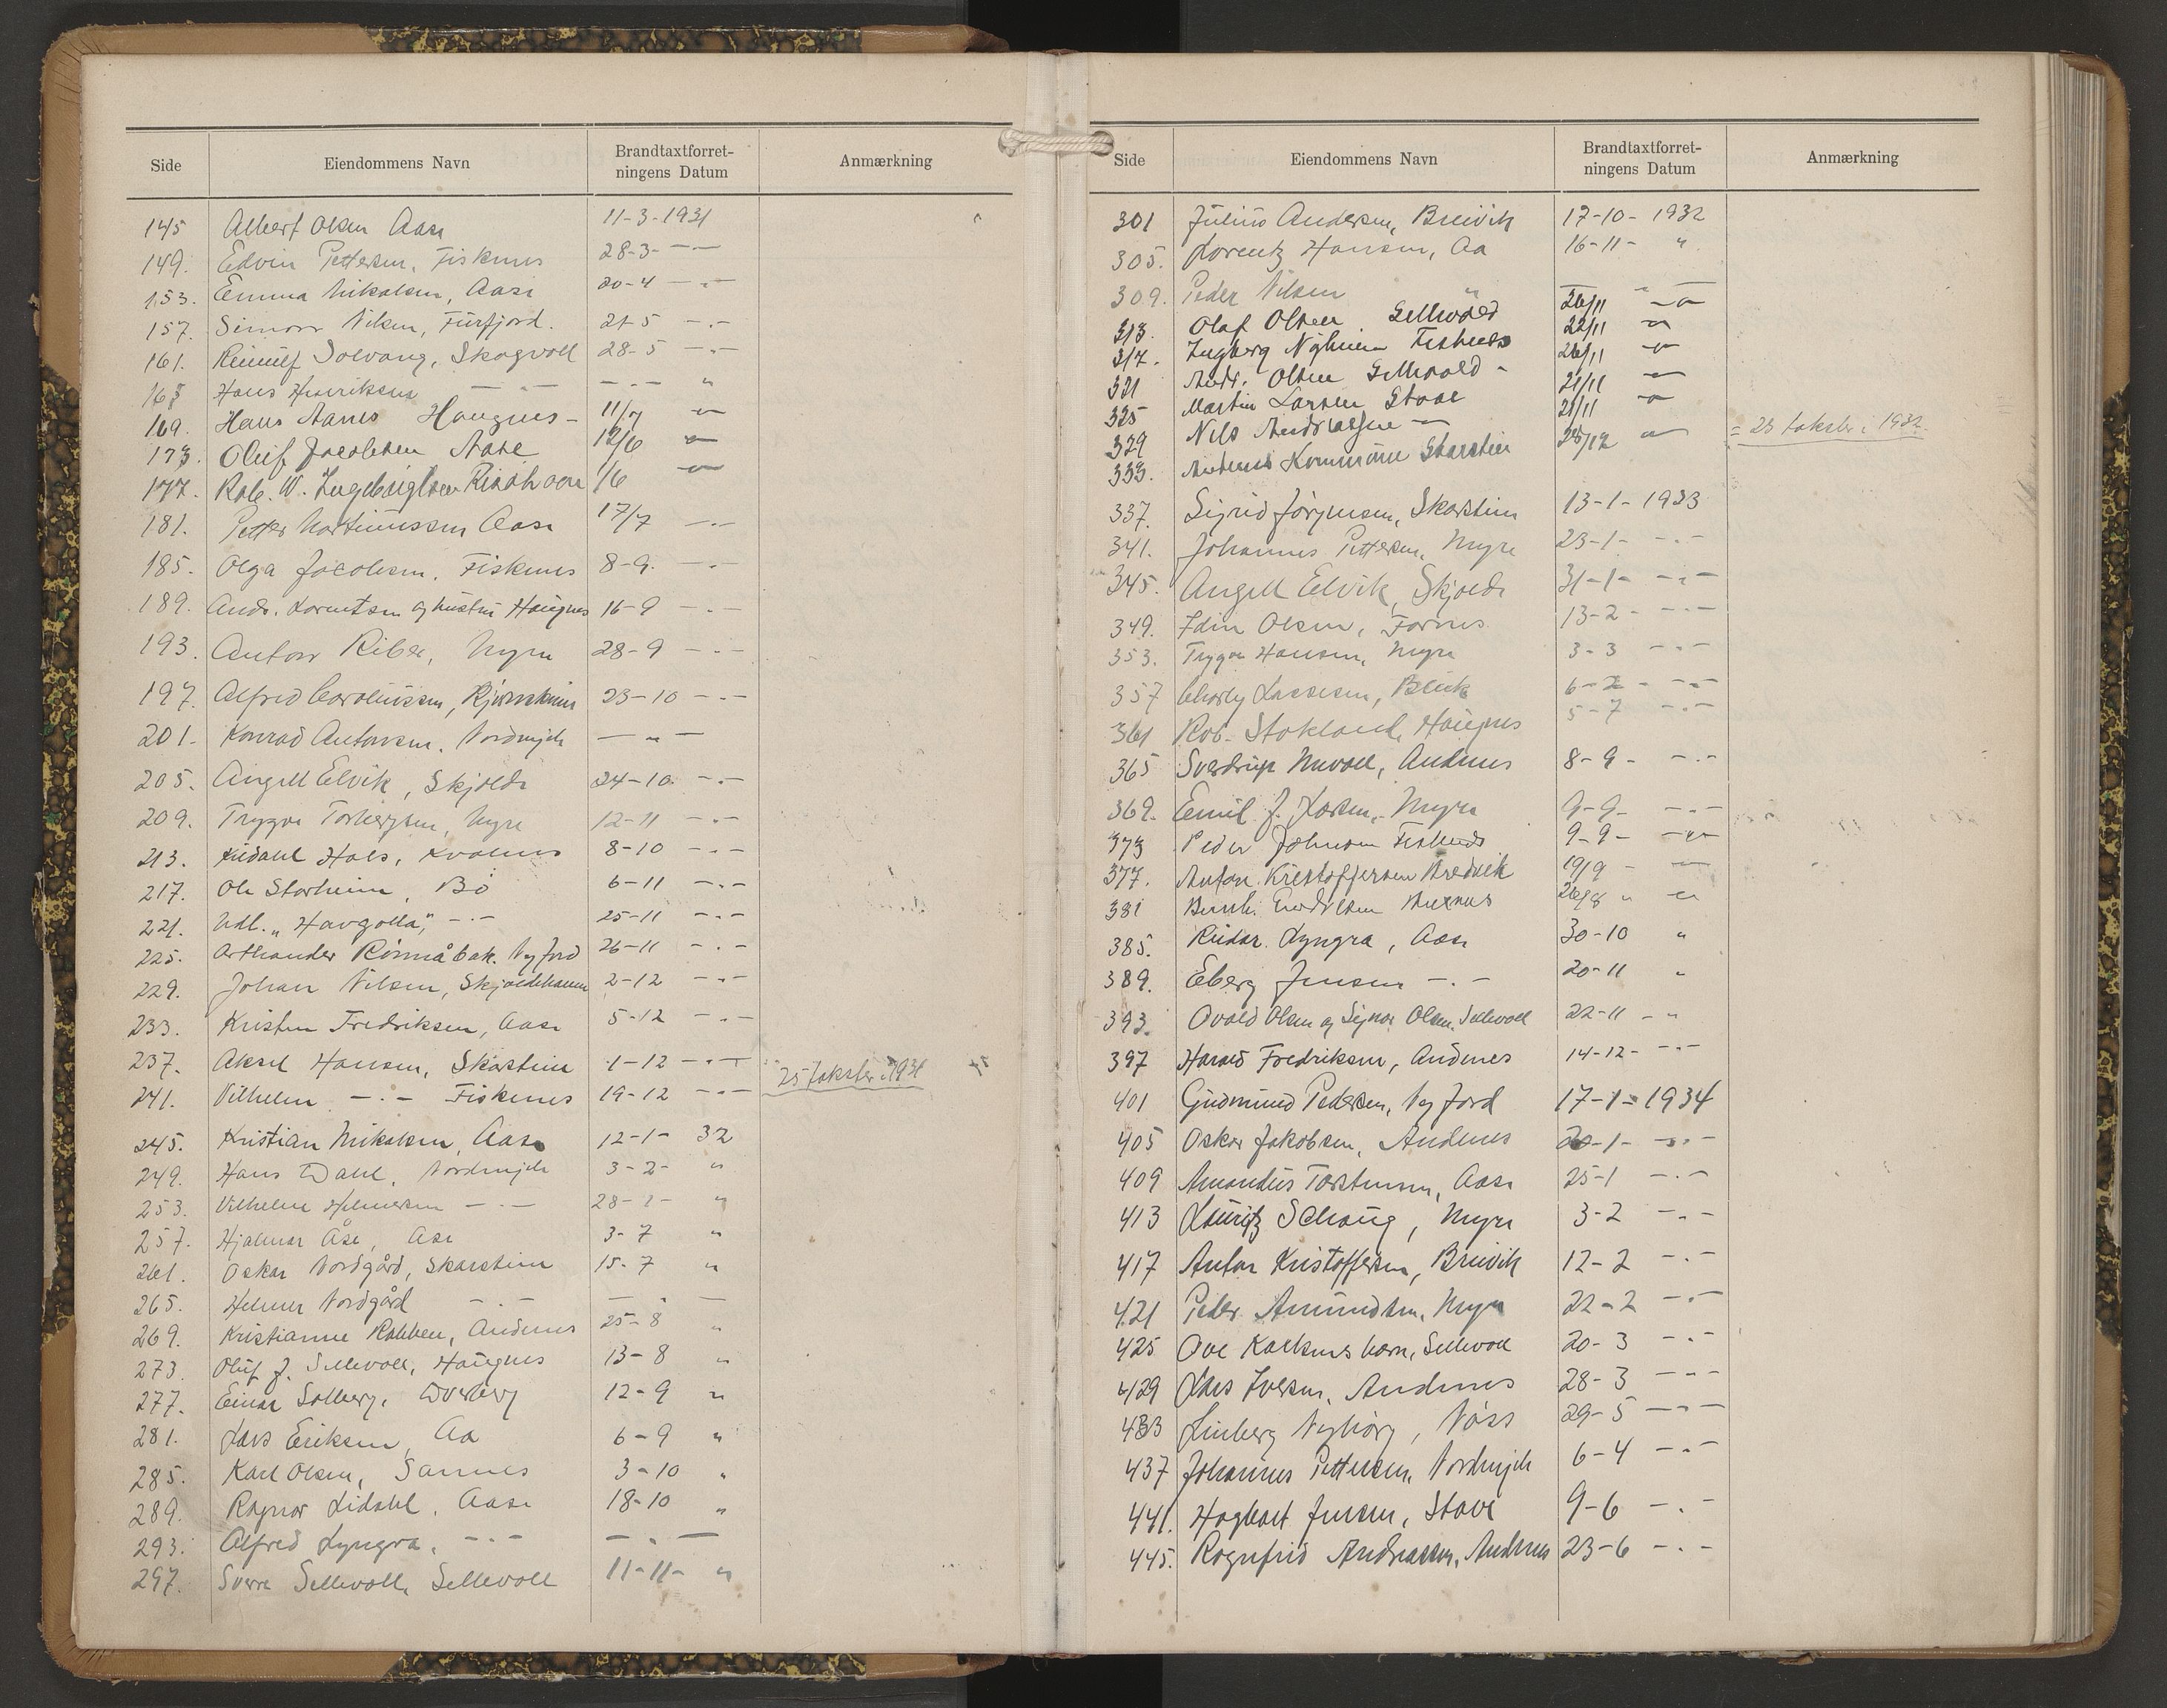 Side Eiendommens Navn Brandtaxtforret- ningens Datum Anmærkning
145 Albert Olsen Aase 11-3-1931
149. Edvin Pettersen, Fiskenes 28-3- — —
153. Emma Nikolaisen, Aase 20-4 — " —
157. Simon Nilsen, Furfjord. 21-5 — " —
161. Reinulf Solvang, Skogvoll 28-5 — " —
165 Hans Henriksen — " — — " — "
169. Hans Aanes Haugnes - 11/7 — " —
173. Oluf Jacobsen Aase 12/6 — " —
177. Rob. W. Ingebrigtsen 1/6 — " —
181. Petter Martinussen Aase 17/7 — " —
185. Olga Jacobsen, Fiskenes 8-9. — " —
189. Andr. Lorentsen og hustru Haugnes 16-9 — " —
193. Anton Riber, Myre 28-9 — " —
197. Alfred Caroliussen, 23-10 — " —
201. Konrad Antonsen, Nordmjele — " —
205. Angell Elvik, Skjolde 24-10. — " —
209. Trygve Torbergsen, Myre 12-11 — " —
213. Hals, Kvalnes 8-10 — " —
217. Ole Storheim, Bö 6-11 — " —
221. Udl. „Havgolla", — " — 25-11 — " —
225. Arthander Rönnåbak. Ny jord 26-11 — " —
229. Johan Nilsen, Skjoldehamn 2-12 — " —
233. Kristen Fredriksen, Aase 5-12 — " —
237. Aksel Hansen, Skarstein 1-12 — " —
241. Vilhelm — " — Fiskenes 19-12 — " — 25 takster i 1931
245. Kristian Nikolaisen, Aase 12-1- 32
249. Hans Dahl, Nordmjele 3-2- "
253. Vilhelm Helmersen — " — 28-2- "
257. Hjalmar Åse, Ase 3-7 "
261. Oskar Nordgård, Skarstein 15-7 "
265. Helmer Nordgård — " — — " —
269. Kristianne Robben, Andenes 25-8 "
273. Oluf J. Sellevoll, Haugnes 13-8 "
277. Einar Solberg, Dverberg 12-9 "
281. Lars Eriksen, Aa 6-9 "
285. Karl Olsen, Sannes 3-10 "
289. Ragnar Lidahl, Aase 18-10 "
293. Alfred Lyngra, — " — — " —
297. Sverre Sellevoll, Sellevoll 11-11- "
Side Eiendommens Navn Brandtaxtforret- ningens Datum Anmærkning
301 Julius Andersen, Breivik 17-10- 1932
305. Lorentz Hansen, Aa 16-11- "
309. Peder Nilsen " — " —
313. Olaf Olsen. Sellevold 26/11 — " —
317. Ingberg Fiskenes 22/11 — " —
321 Andr. Olsen Sellevold - 26/11 — " —
325 Martin Larsen Stave 21/11 — " —
329 Nils Andreassen — " — 21/11 — " —
333. Andenes Kommune Skarstein 28/12 — " — = 23 takster i 1932.
337. Sigrid Jörgensen, Skarstein 13-1- 1933
341. Johannes Pettersen, Myre 23-1- — " —
345. Angell Elvik, Skjolde 31-1- — " —
349. Edin Olsen, Fornes 13-2- — " —
353. Trygve Hansen, Myre 3-3 — " —
357 Charly Lassesen, Bleik 6-2- — " —
361 Rob. Stokland, Haugnes 5-7 — " —
365 Sverdrup Nuvoll, Andenes 8-9- — " —
369. Emil J. Larsen, Myre 9-9- — " —
373 Peder Johnsen Fiskenes 9-9- — " —
377. Anton Kristoffersen Bredvik 19/9 - — " —
381 26/8 " — " —
385. Reidar Lyngra, Aase 30-10 "
389. Eberg Jensen — " — 20-11 "
393. Ovald Olsen og Signar Olsen, Sellevoll 22-11 - "
397 Harald Fredriksen, Andenes 14-12- — " —
401 Gudmund Pedersen, Ny Jord 17-1- 1934
405 Oskar Jakobsen, Andenes 20-1- — " —
409 Amandus Torstensen, Aase 25-1 — " —
413 Lauritz Schaug, Myre 3-2 — " —
417 Anton Kristoffersen, Breivik 12-2 — " —
421 Peder Amundsen, Myre 22-2 — " —
425 Ove Karlsens barn, Sellevoll 20-3 — " —
429 Lars Iversen, Andenes 28-3 — " —
433 Linberg Nyborg, Nöss 29-5 — " —
437 Johannes Pettersen, Nordmjele 6-4 — " —
441. Hagbart Jensen, Stave 9-6 — " —
445. Ragnfrid Andreassen, Andenes 23-6 — " —